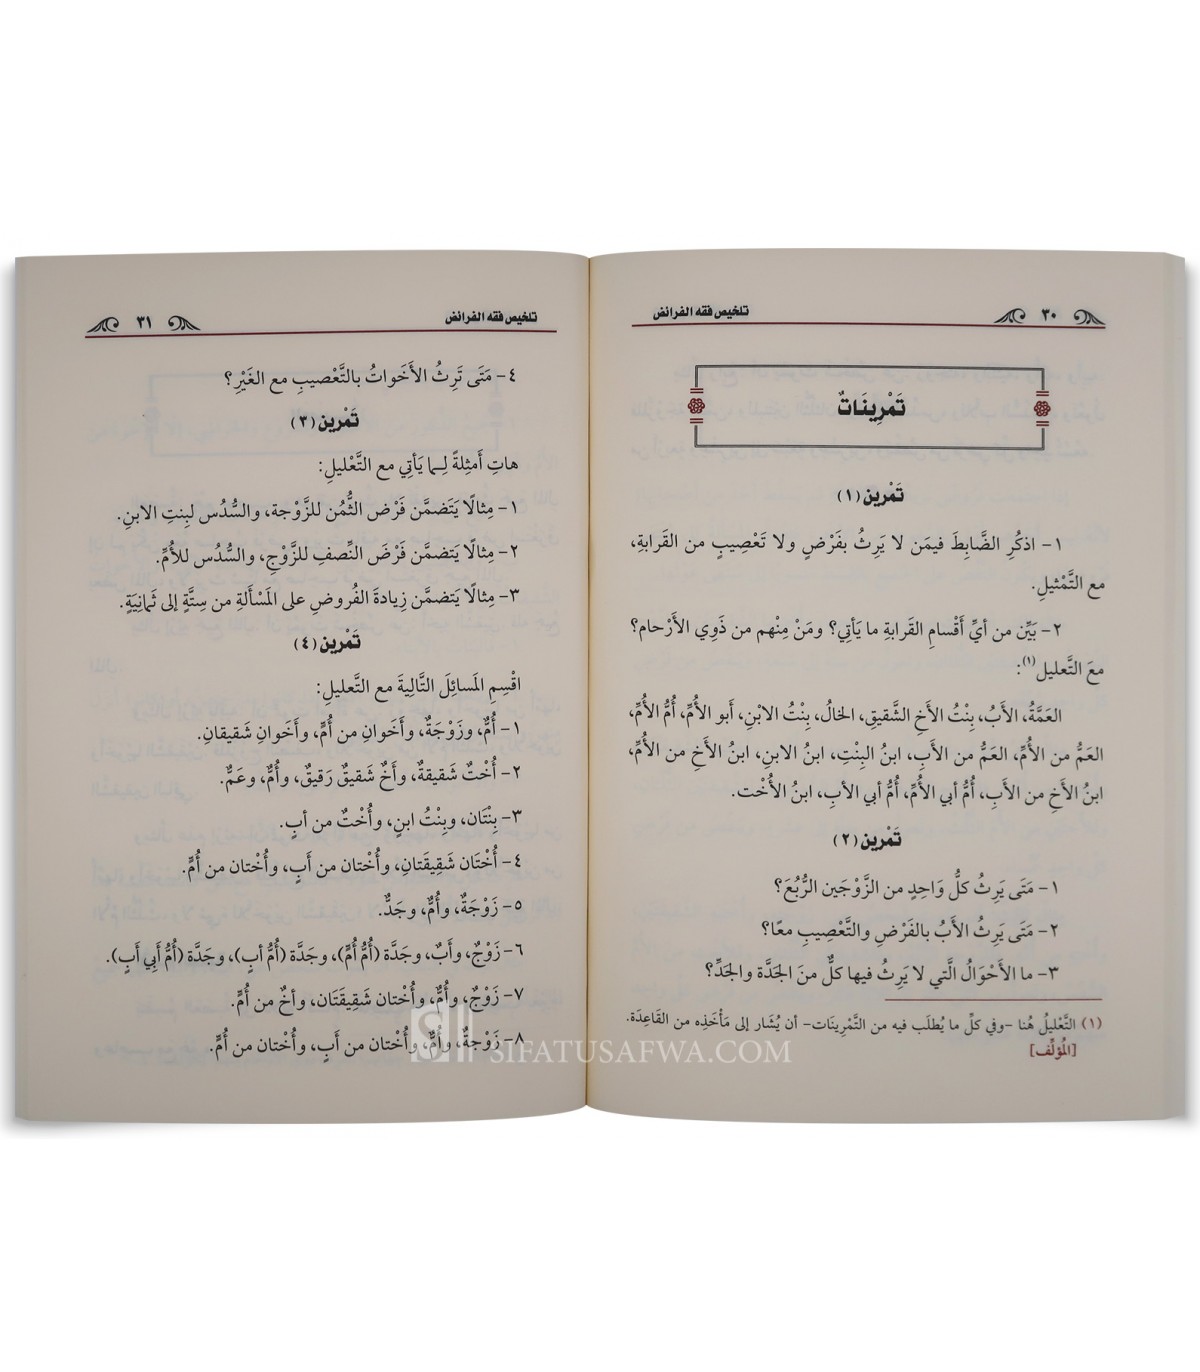 ٣٠
تلخيص فقه الفرائض
تَمْرِينَاتٌ
تَمْرين (١)
١- اذكُرِ الضَّابِطَ فيمَن لا يَرِثُ بفَرْضٍ ولا تَعْصِيبٍ من القَرابةِ،
مع التَّمْثيلِ.
٢- بَيِّن من أيِّ أَقْسامِ القَرابةِ ما يَأتِي؟ ومَنْ مِنْهم من ذَوِي الأَرْحام؟
معَ التَّعليل(١):
العَمَّةُ، الأَبُ، بِنْتُ الأَخِ الشَّقيقِ، الخالُ، بِنْتُ الابْنِ، أَبو الأُمِّ، أُمُّ الأُمِّ،
العَمُّ من الأُمِّ، العَمُّ من الأَبِ، ابنُ البِنْتِ، ابنُ الابنِ، ابنُ الأَخِ من الأُمِّ،
ابنُ الأَخِ من الأَبِ، أُمُّ أبي الأُمِّ، أُمُّ أبي الأبِ، ابنُ الأُخْت.
تَمْرين (٢)
١- مَتَى يَرِثُ كلُّ وَاحِدٍ من الزَّوْجَين الرُّبُعَ؟
٢- مَتَى يَرِثُ الأَبُ بالفَرْضِ والتَّعْصِيبِ معًا؟
٣- ما الأَحْوَالُ الَّتي لا يَرِثُ فيها كلٌّ منَ الجَدَّة والجَدِّ؟
(١) التَّعْليلُ هُنا -وفي كلِّ ما يُطلَب فيه من التَّمْرِينَات- أن يُشَار إلى مَأْخَذِه من القَاعِدَة.
[المُؤلِّف]
تلخيص فقه الفرائض
٣١
٤- مَتَى تَرِثُ الأَخَواتُ بالتَّعْصيبِ مع الغَيْرِ؟
تَمْرين (٣)
هاتِ أَمثِلةً لِـما يَأتِي مع التَّعْليلِ:
١- مِثالًا يَتَضمَّن فَرْض الثُّمُن للزَّوْجة، والسُّدُس لبِنتِ الابنِ.
٢- مِثالًا يَتضمَّن فَرْضَ النِّصفِ للزَّوْجِ، والسُّدُس للأُمِّ.
٣- مِثالًا يَتضمَّن زِيادةَ الفُروضِ على المَسْأَلةِ من سِتَّةٍ إلى ثَمانِيَةٍ.
تَمْرين (٤)
اقْسِمِ المَسائِلَ التَّالِيةَ مع التَّعليلِ:
١- أُمٌّ، وزَوْجَةٌ، وأَخَوانِ من أُمٍّ، وأَخَوانِ شَقيقانِ.
٢- أُخْتٌ شَقيقةٌ، وأَخٌ شَقيقٌ رَقيقٌ، وأُمٌّ، وعَمٌّ.
٣- بِنْتَان، وبِنْتُ ابنٍ، وأُخْتٌ من أبٍ.
٤- أُخْتَان شَقِيقَتانِ، وأُخْتان من أَبٍ، وأُخْتان من أُمٍّ.
٥- زَوْجَةٌ، وأُمٌّ، وجَدٌّ.
٦- زَوْجٌ، وأَبٌ، وجَدَّة (أُمُّ أُمٍّ)، وجَدَّة (أُمُّ أبٍ)، وجَدَّة (أُمُّ أَبِي أَبٍ).
٧- زَوْجٌ، وأُمٌّ، وأُخْتان شَقِيقَتَان، وأخٌ من أُمٍّ.
٨- زَوْجةٌ، وأُمٌّ، وأُخْتان من أَبٍ، وأُخْتان من أُمٍّ.
SIFATUSAFWA.COM